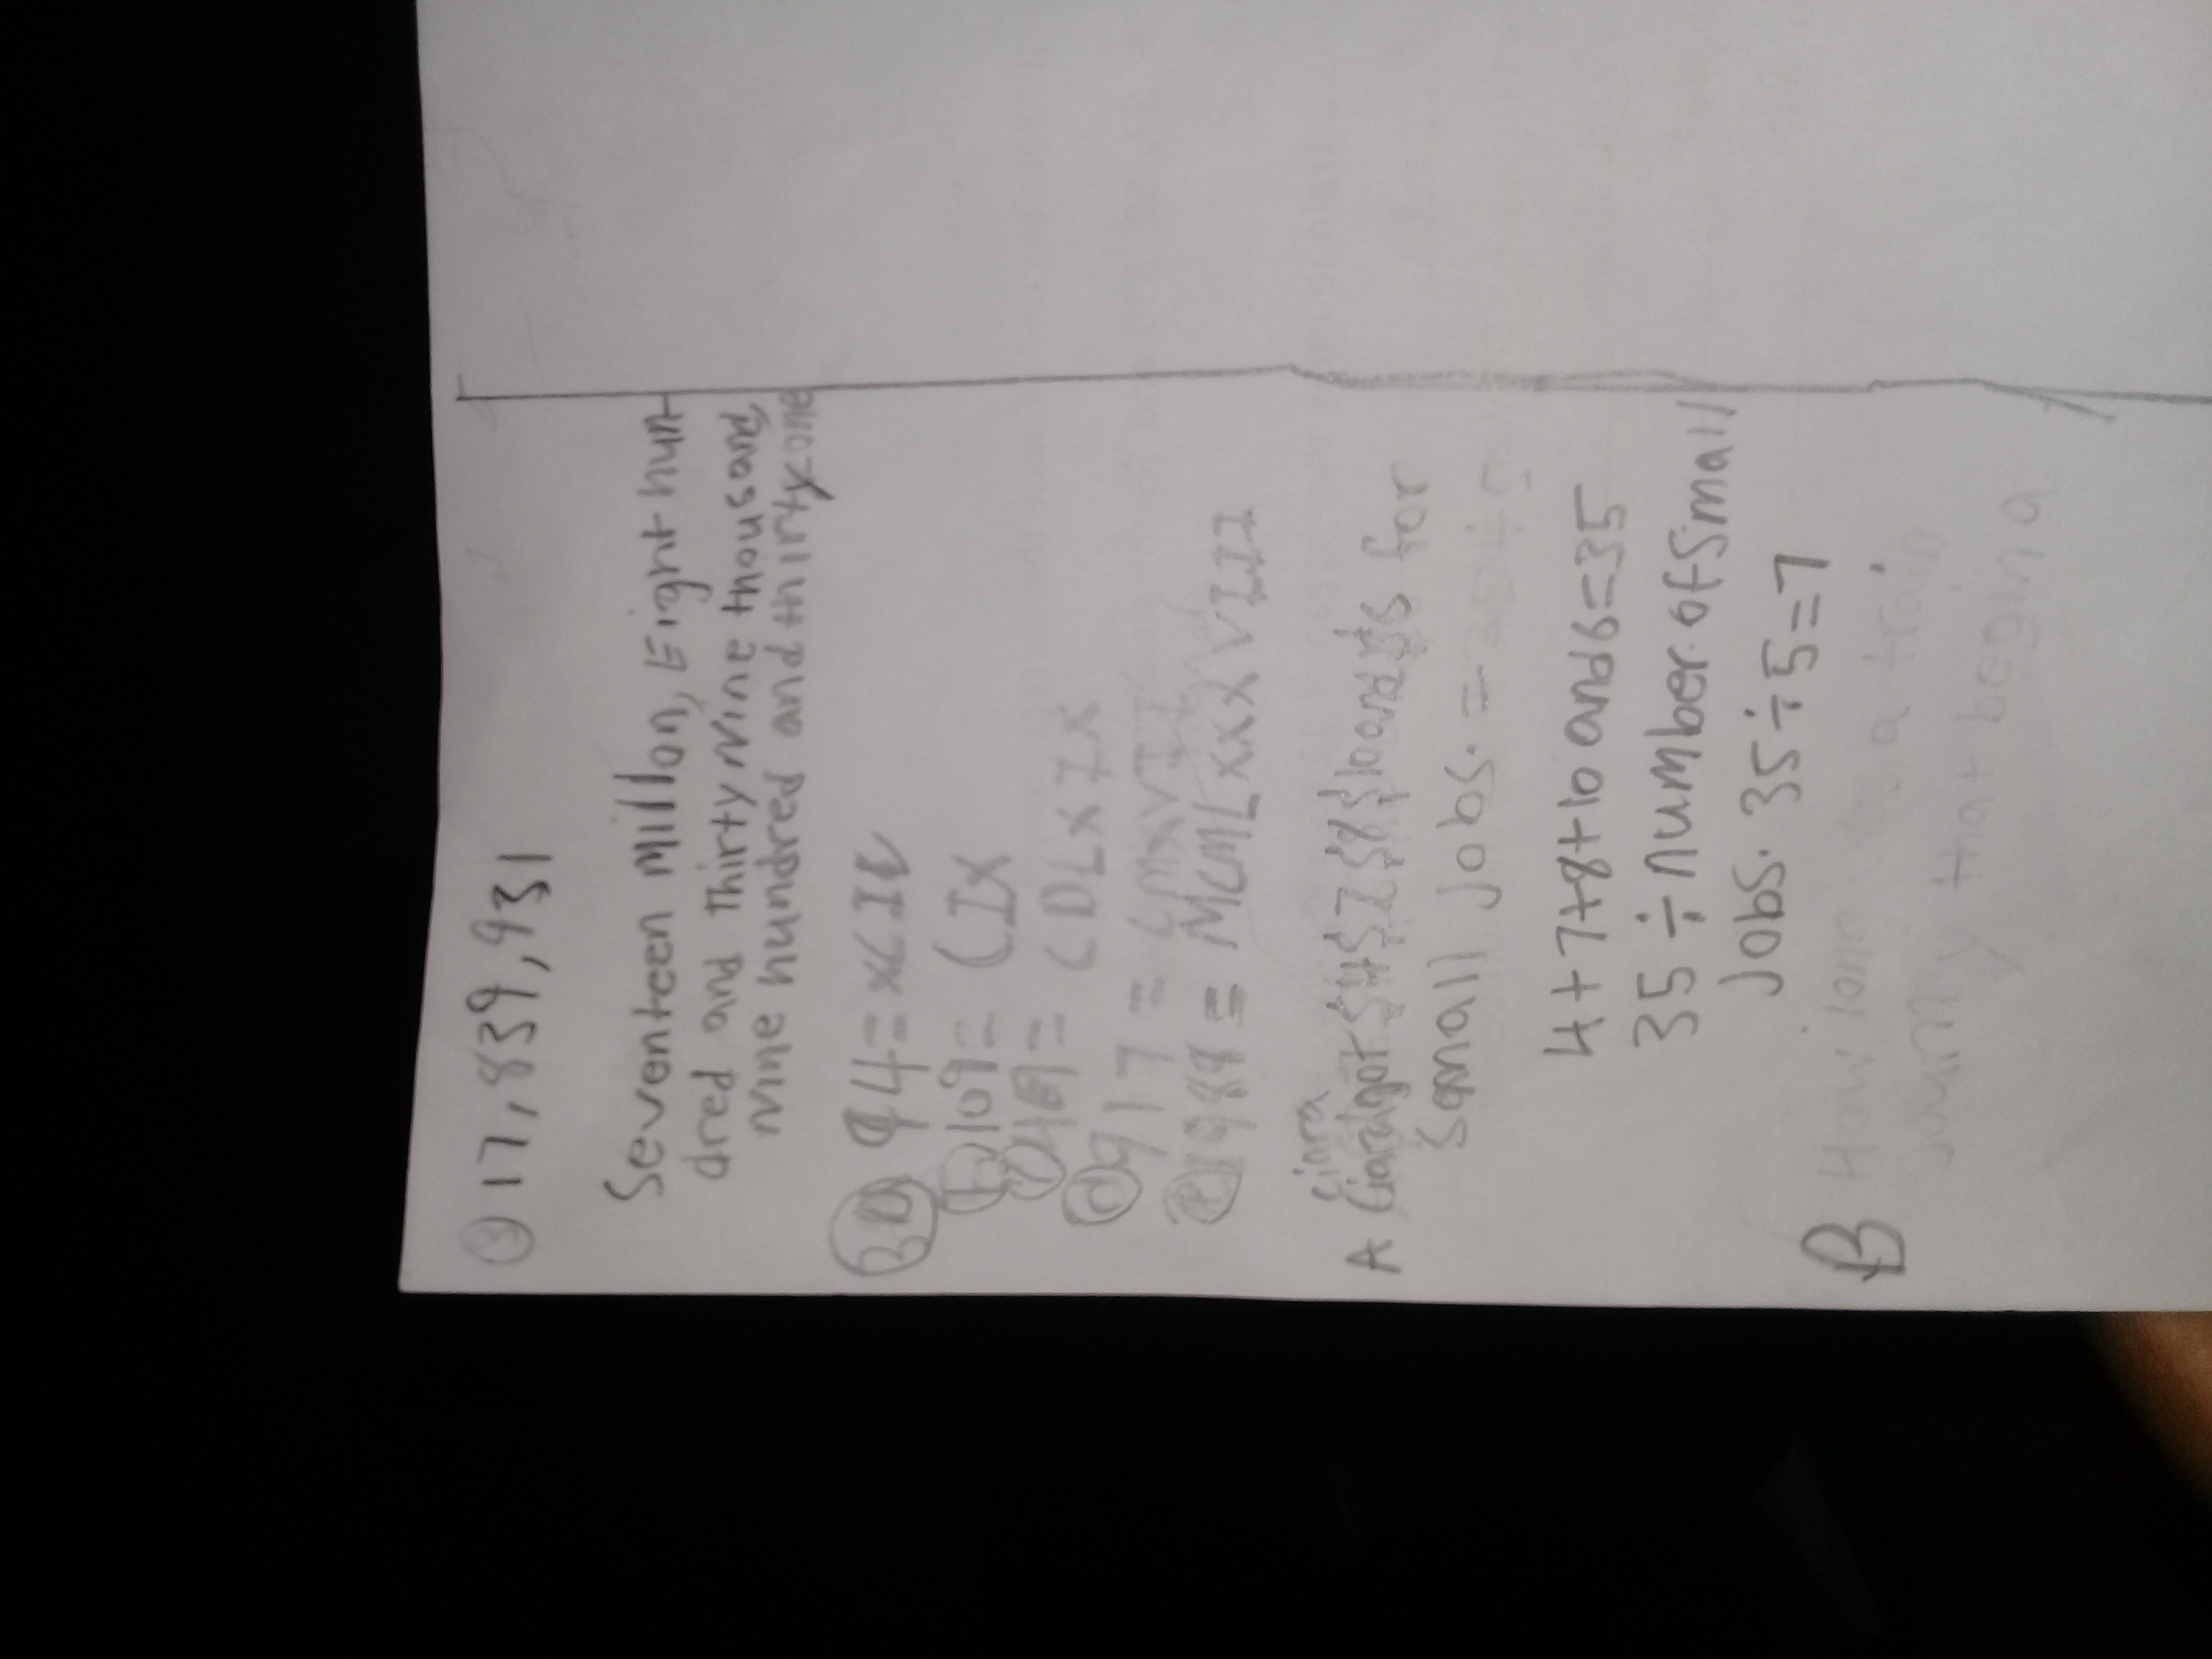 ③ 17,839,931
Seventeen Millon, Eight hun
dred and Thirty Nine thousand,
Nine hundred and thirty one
3 a 94 = XCIV
b 109 = CIX
469 = CDLXIX
d 917 = CMXVII
e 1988 = MCMLXXXVIII
A got $4 $7 $8 $10 and $6 for
small jobs. =
4+7+8+10 and 6=35
35 ÷ number of small
Jobs. 35÷5=7
B How long a train
that begin a